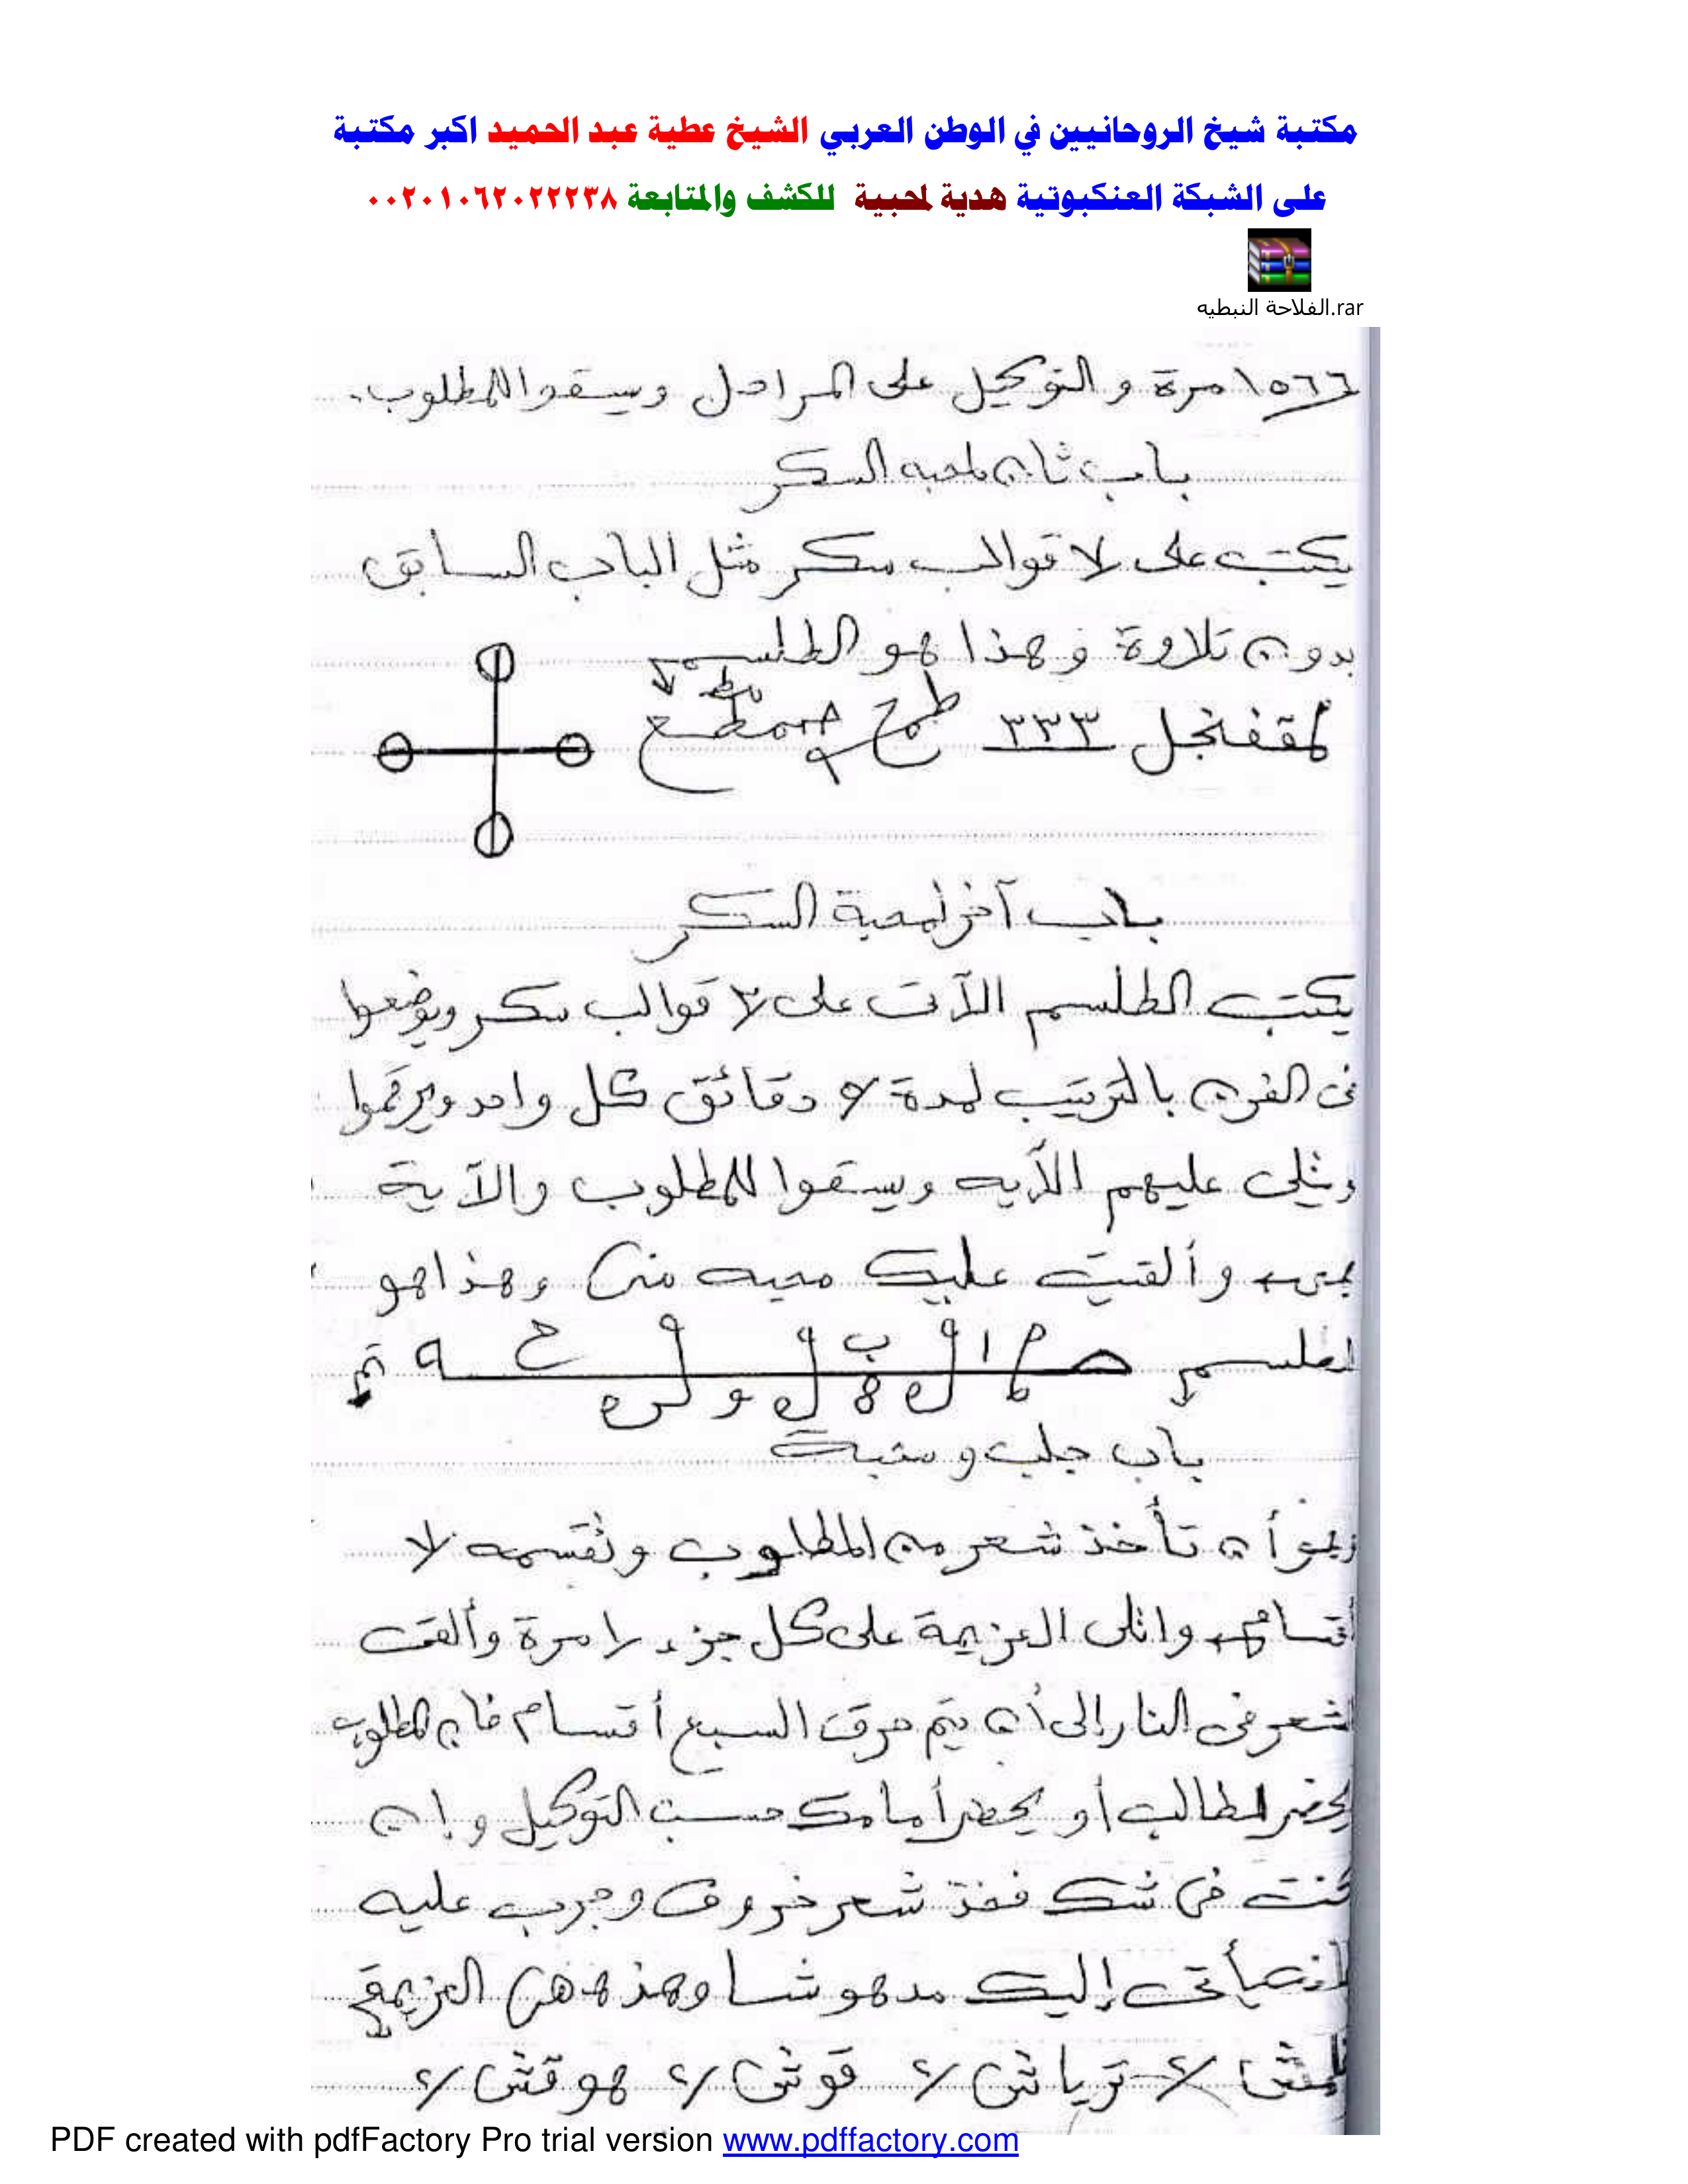 مكتبة شيخ الروحانيين في الوطن العربي الشيخ عطية عبد الحميد اكبر مكتبة
على الشبكة العنكبوتية هدية لمحبية للكشف والمتابعة ٠٠٢٠١٠٦٢٠٢٢٢٣٨
الفلاحة النبطيه.rar
١٥٦٦ مرة و التوكيل على المراحل ويسقوا للمطلوب.
باب ثان لمحبه السكر
يكتب على ٧ قوالب سكر مثل الباب السابق
بدون تلاوة وهذا هو الطلسم
٣٣٣ طمح
باب آخر لمحبة السكر
يكتب الطلسم الآتى على ٣ قوالب سكر ويوضعوا
فى الفرن بالترتيب لمدة دقائق كل واحد
وتلى عليهم الآيه ويسقوا للمطلوب والآية
هى وألقيت عليك محبه منى وهذا هو
الطلسم
ح ب ا م
باب جلب و
أن تأخذ شعر من المطلوب وتقسمه ٧
أقسام واتلى العزيمة على كل جزء مرة وألقى
الشعر فى النار إلى أن يتم حرق السبع أقسام فإن المطلوب
يحضر للطالب أو يحضر أمامك حسب التوكيل وإن
كنت فى شك فخذ شعر خروف وجرب عليه
يأتى إليك مدهوشا وهذه هى العزيمة
ترياش ٢/ قوش ٢/ هوقش ٢/
PDF created with pdfFactory Pro trial version www.pdffactory.com